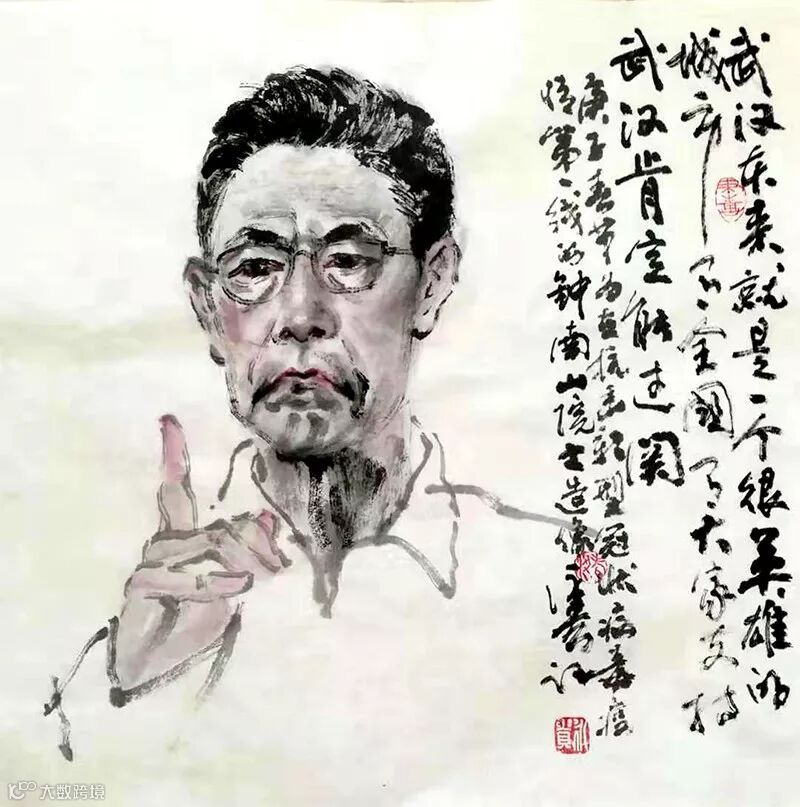 武汉本来就是一个很英雄的
城市有全國有大家支持
武汉肯定能过関
庚子春节为在抗击新型冠状病毒疫
情第一线的钟南山院士造像
大数跨境